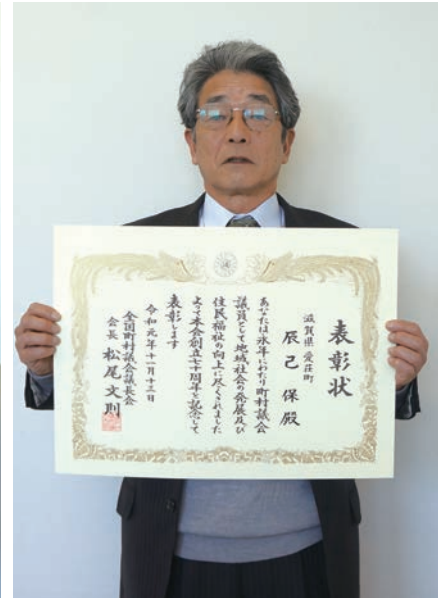 表彰状
滋賀県 愛荘町
辰己 保 殿
あなたは永年にわたり町村議会
議員として地域社会の発展及び
住民福祉の向上に尽くされました
よって本会創立七十周年を記念して
表彰します
令和元年十一月十三日
全国町村議会議長会
会長 松尾文則